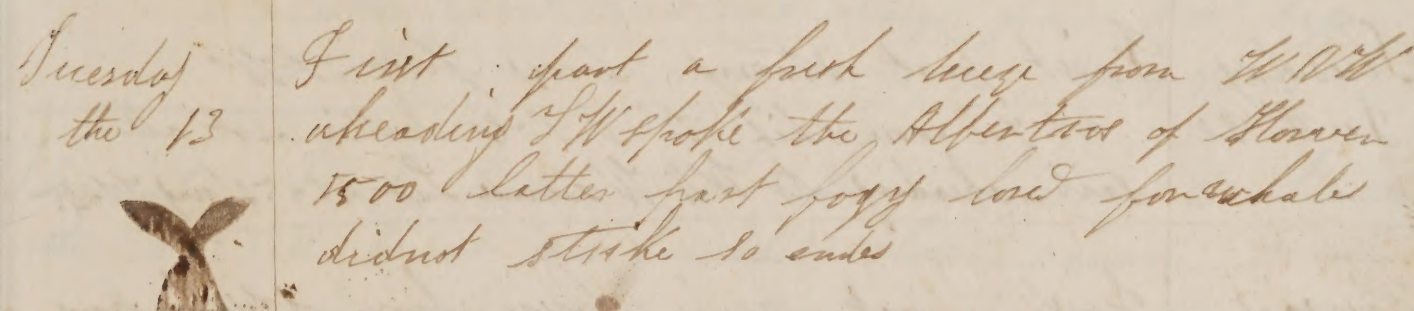 Tuesday First part a fresh breeze from WNW
the 13 a heading SW spoke the Albertros of Howen
1500 latter part fogy lord for whale
didnot strike so endes